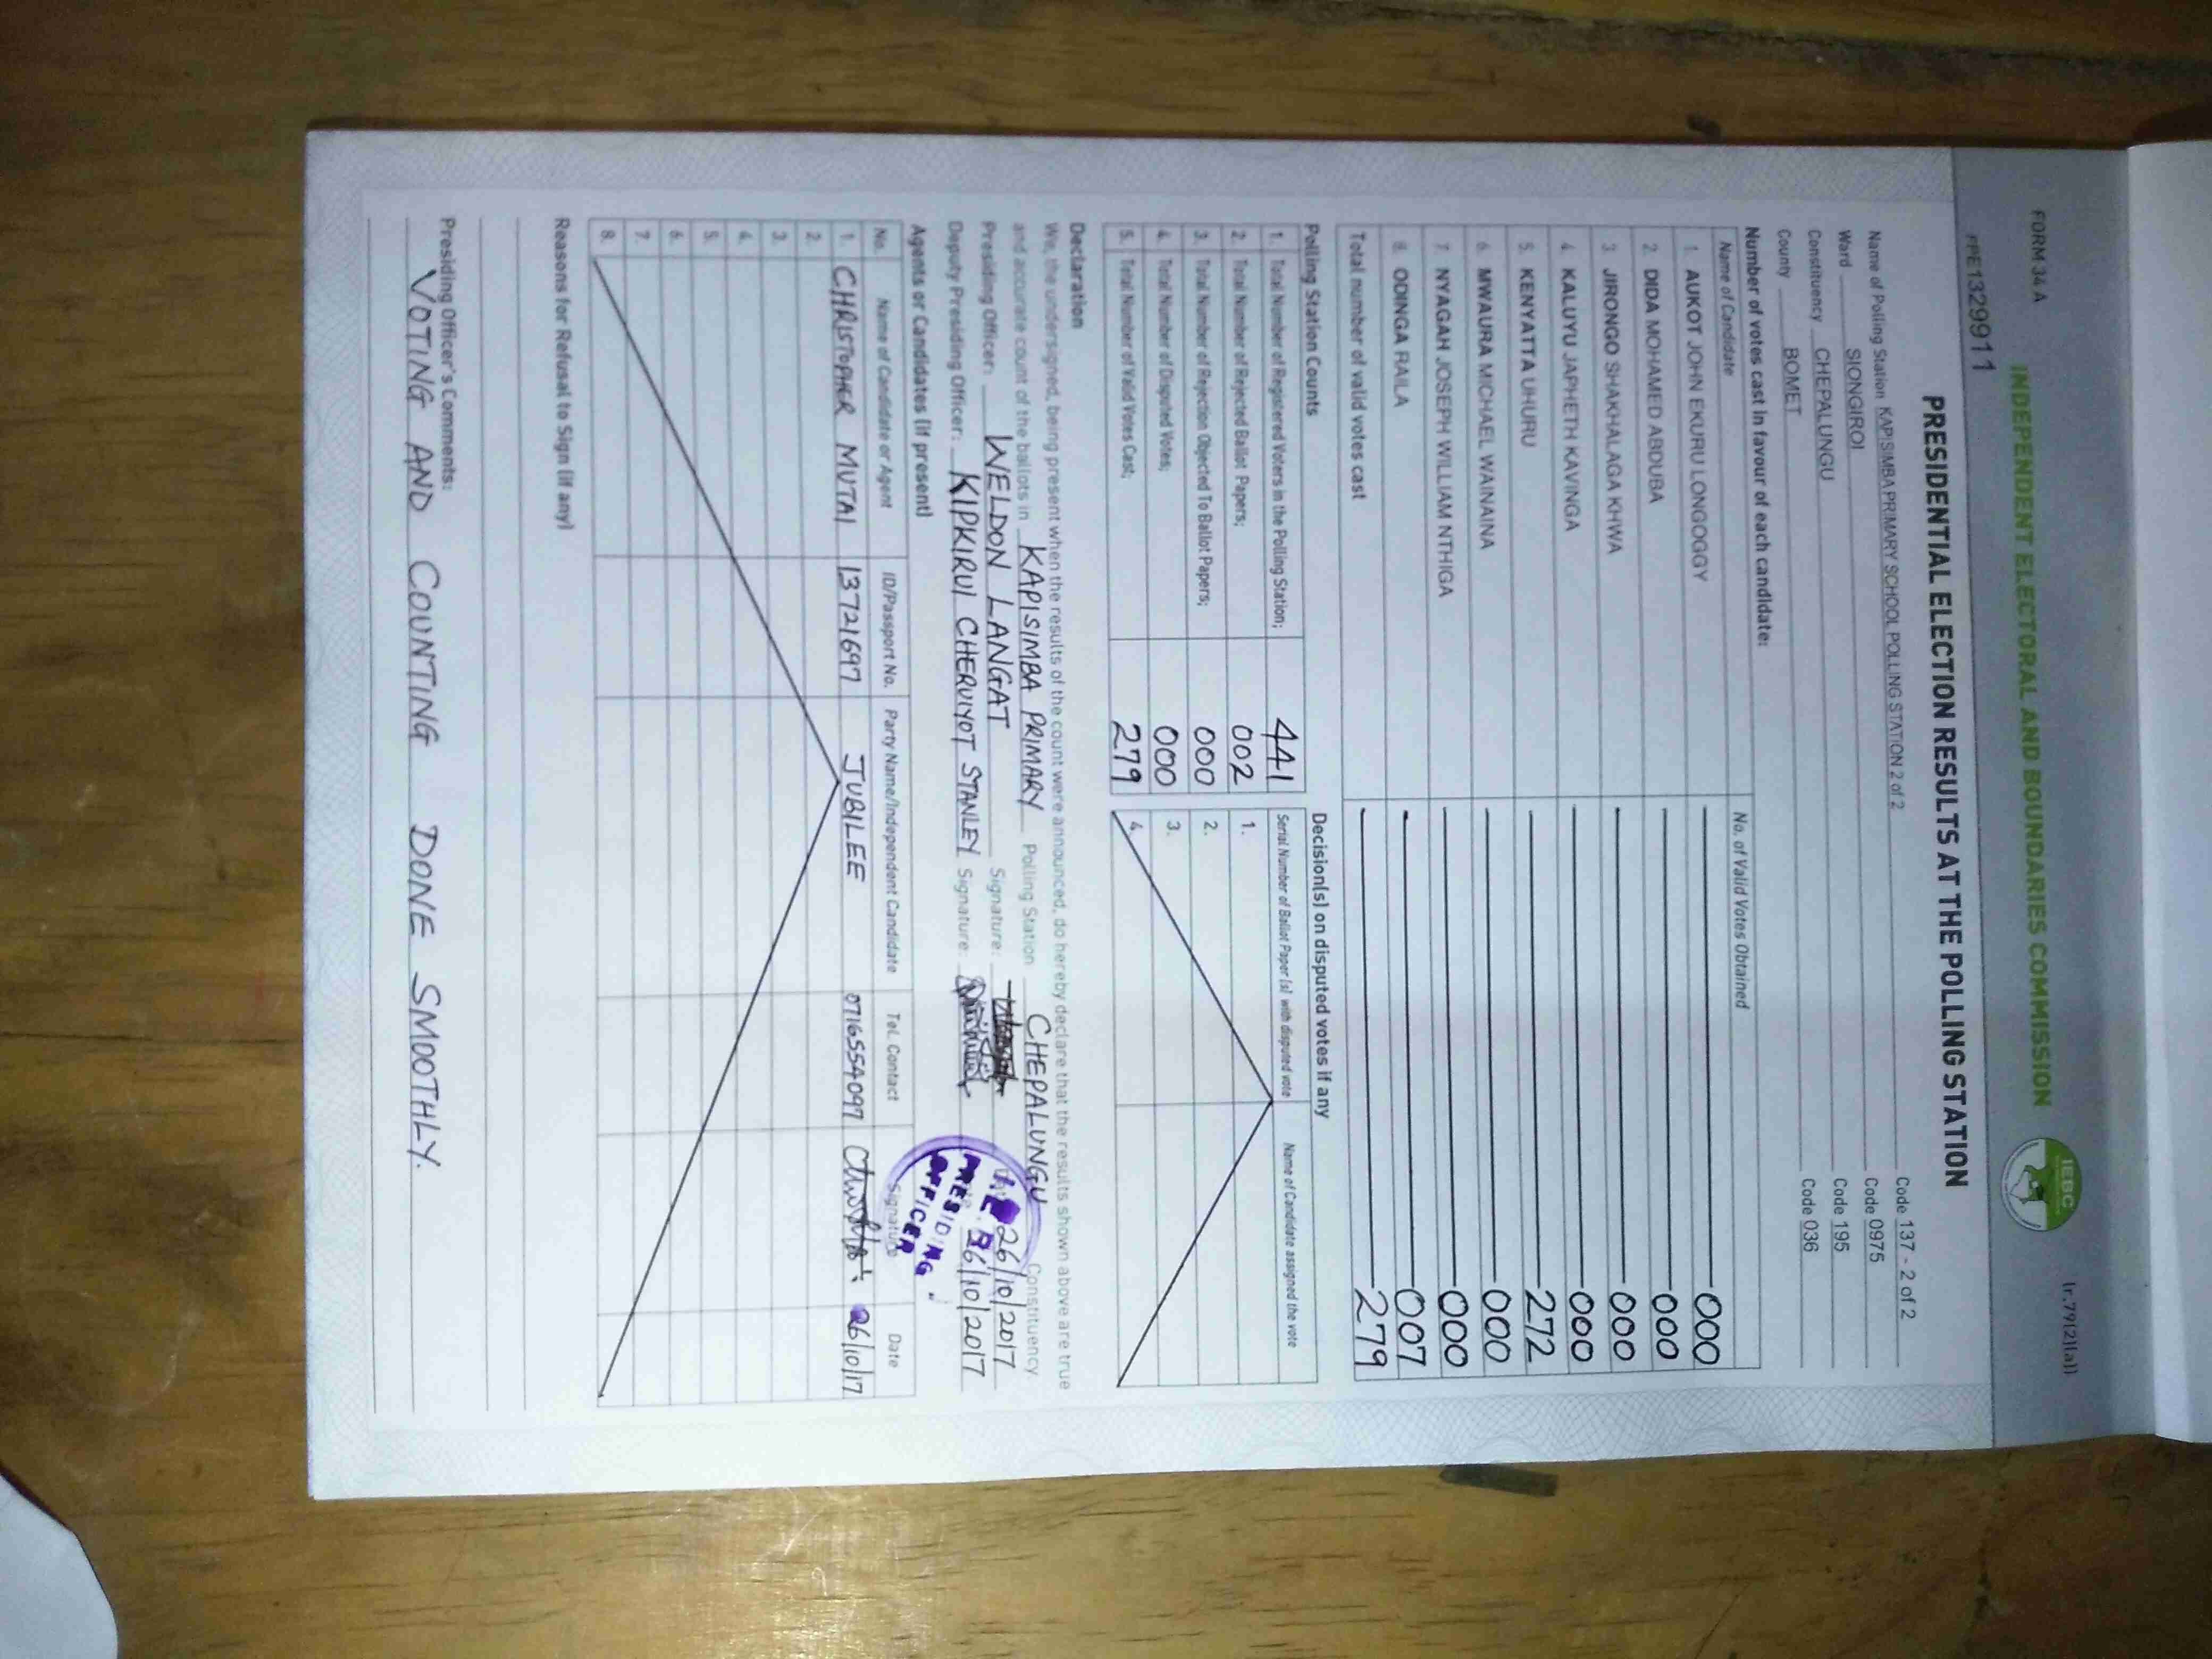 FORM 34 A
(r.79(2)(a))
INDEPENDENT ELECTORAL AND BOUNDARIES COMMISSION
IEBC
PPE1329911
PRESIDENTIAL ELECTION RESULTS AT THE POLLING STATION
Name of Polling Station KAPISIMBA PRIMARY SCHOOL POLLING STATION 2 of 2 Code 137 - 2 of 2
Ward SIONGIROI Code 0975
Constituency CHEPALUNGU Code 195
County BOMET Code 036
Number of votes cast in favour of each candidate:
Name of Candidate No. of Valid Votes Obtained
1. AUKOT JOHN EKURU LONGOGGY 000
2. DIDA MOHAMED ABDUBA 000
3. JIRONGO SHAKHALAGA KHWA 000
4. KALUYU JAPHETH KAVINGA 000
5. KENYATTA UHURU 272
6. MWAURA MICHAEL WAINAINA 000
7. NYAGAH JOSEPH WILLIAM NTHIGA 000
8. ODINGA RAILA 007
Total number of valid votes cast 279
Polling Station Counts
1. Total Number of Registered Voters in the Polling Station; 441
2. Total Number of Rejected Ballot Papers; 002
3. Total Number of Rejection Objected To Ballot Papers; 000
4. Total Number of Disputed Votes; 000
5. Total Number of Valid Votes Cast; 279
Decision(s) on disputed votes if any
Serial Number of Ballot Paper (s) with disputed vote Name of Candidate assigned the vote
1.
2.
3.
4.
Declaration
We, the undersigned, being present when the results of the count were announced, do hereby declare that the results shown above are true
and accurate count of the ballots in KAPISIMBA PRIMARY Polling Station CHEPALUNGU Constituency
Presiding Officer: WELDON LANGAT Signature: 26/10/2017
Deputy Presiding Officer: KIPKIRUI CHERUIYOT STANLEY Signature: 26/10/2017
PRESIDING
OFFICER
Agents or Candidates (if present)
No. Name of Candidate or Agent ID/Passport No. Party Name/Independent Candidate Tel. Contact Signature Date
1. CHRISTOPHER MUTAI 13721697 JUBILEE 0716554097 26/10/17
2.
3.
4.
5.
6.
7.
8.
Reasons for Refusal to Sign (if any)
Presiding Officer's Comments:
VOTING AND COUNTING DONE SMOOTHLY.